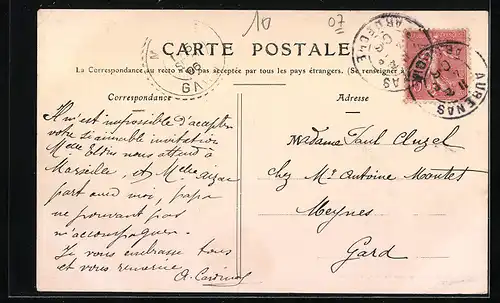 10
07
CARTE POSTALE
La Correspondance au recto n'est pas acceptée par tous les pays étrangers. (Se renseigner à
Correspondance
Adresse
AUBENAS
ARDECHE
Il m'est impossible d'accepter
votre si aimable invitation
Melle nous attend à
Marseille, et Melle
part avec moi, papa
ne pouvant pas
m'accompagner.
Je vous embrasse tous
et vous remercie
A. Cardinal
Madame Paul Auzel
chez Mr Antoine Montet
Meynes
Gard